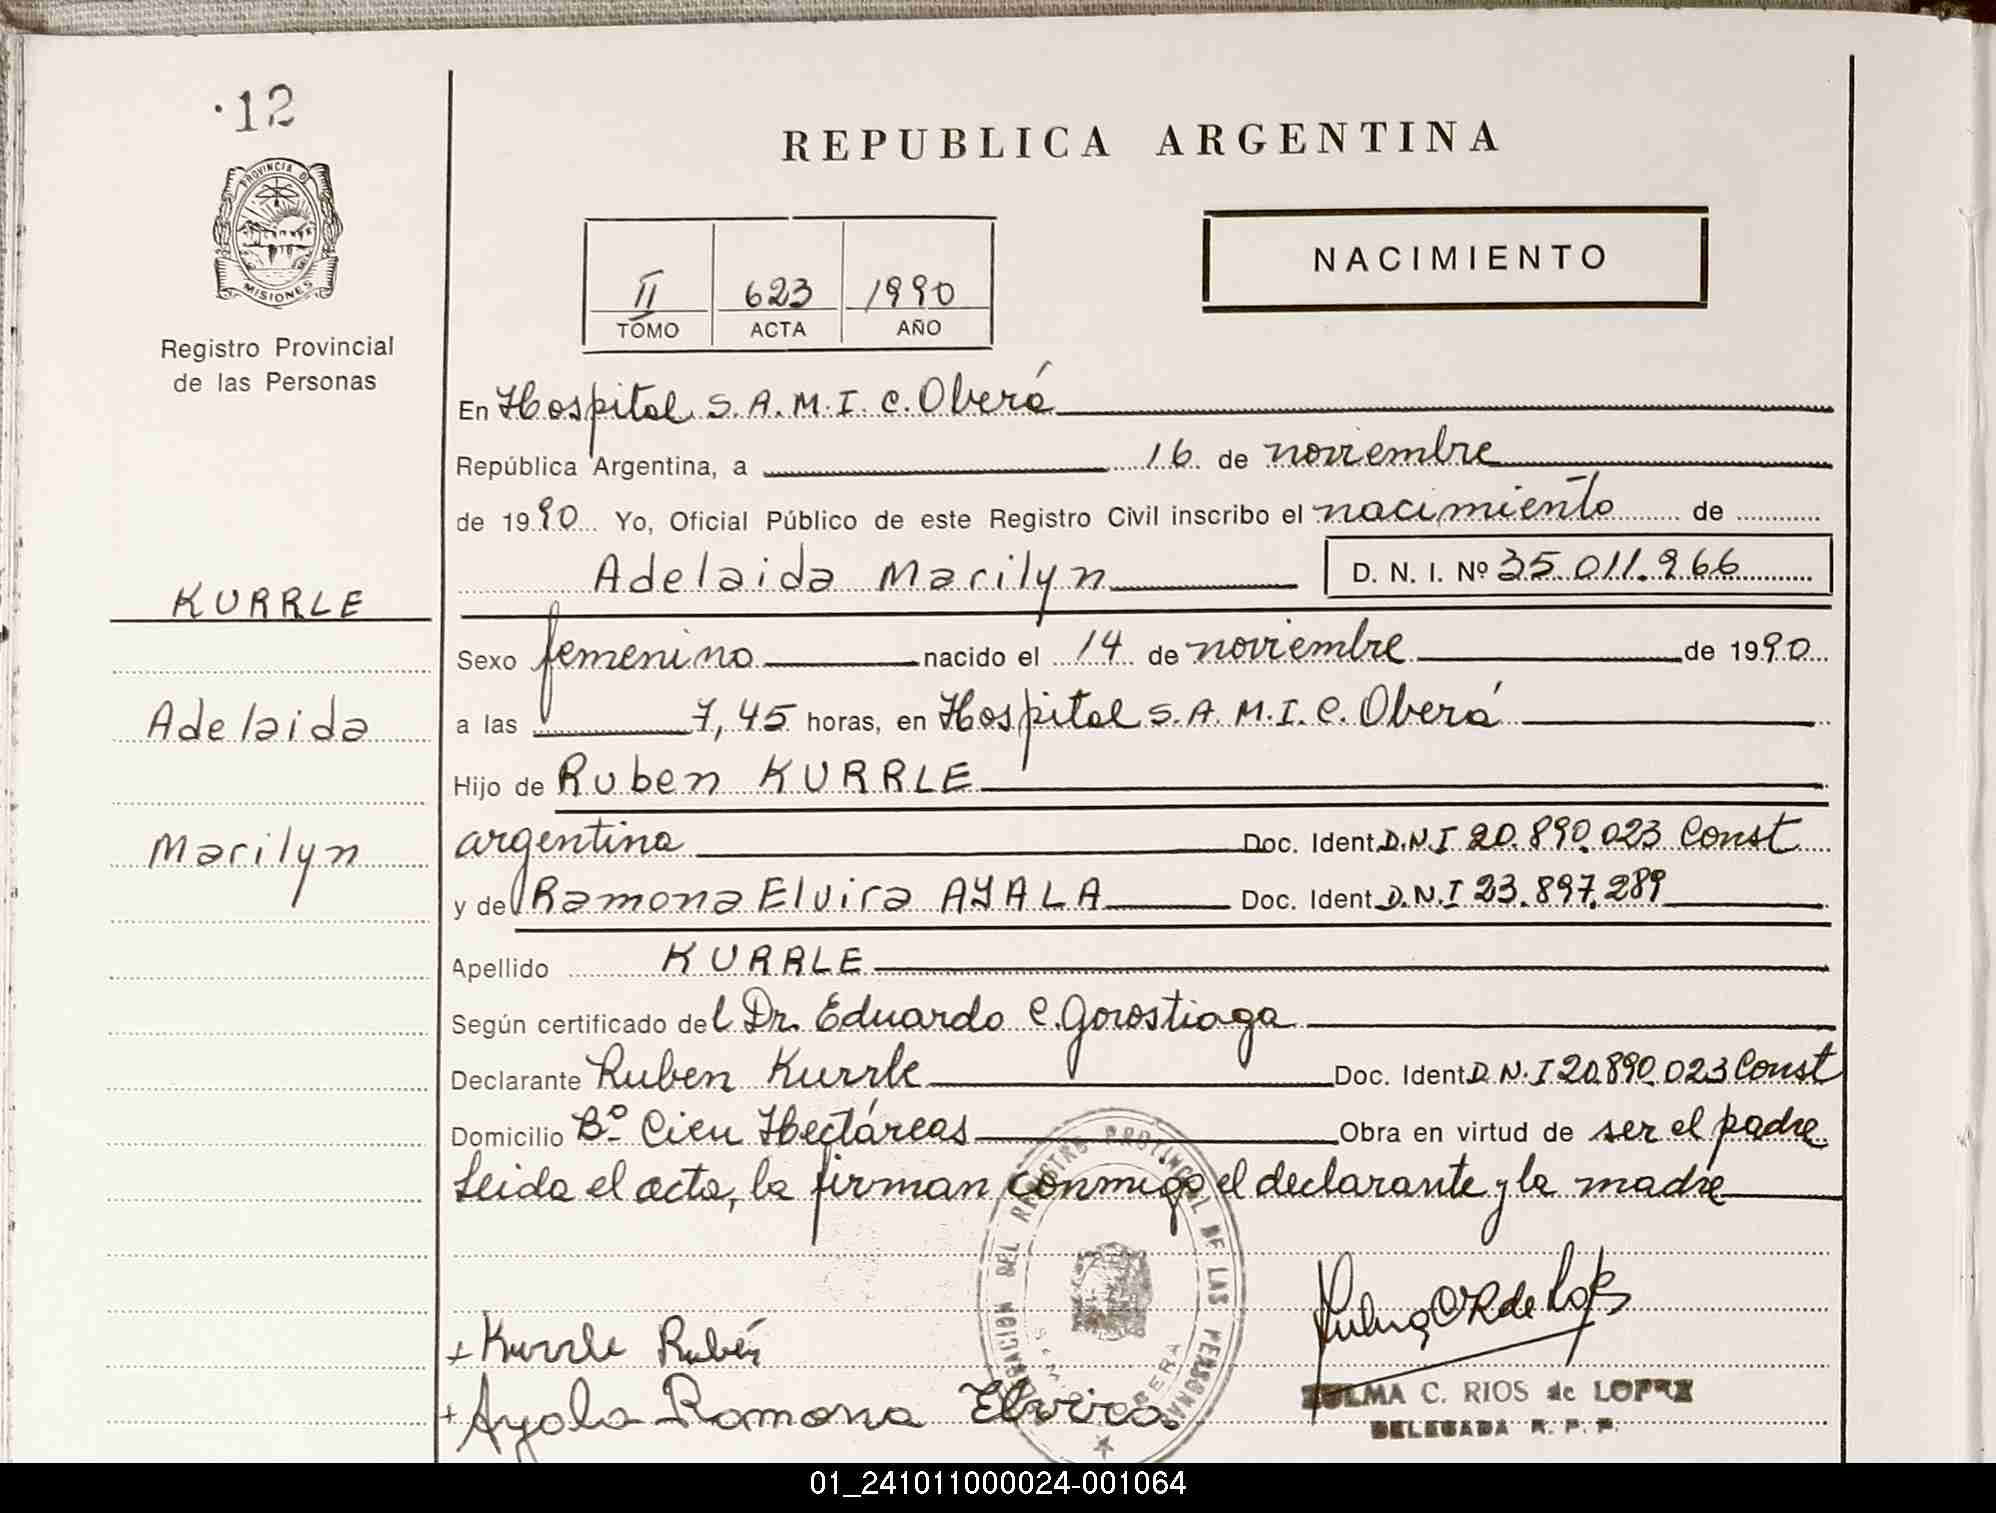 ·12
PROVINCIA D
MISIONES
Registro Provincial
de las Personas
KURRLE
Adelaida
Marilyn
REPUBLICA ARGENTINA
II 623 1990
TOMO ACTA AÑO
NACIMIENTO
En Hospital S.A.M.I.C. Oberá
República Argentina, a 16 de noviembre
de 1990 Yo, Oficial Público de este Registro Civil inscribo el nacimiento de
Adelaida Marilyn D. N. I. Nº 35.011.966
Sexo femenino nacido el 14 de noviembre de 1990
a las 7,45 horas, en Hospital S.A.M.I.C. Oberá
Hijo de Ruben KURRLE
argentina Doc. Ident D.N.I 20.890.023 Const
y de Ramona Elvira AYALA Doc. Ident D.N.I 23.897.289
Apellido KURRLE
Según certificado del Dr. Eduardo C. Gorostiaga
Declarante Ruben Kurrle Doc. Ident D.N.I 20.890.023 Const
Domicilio Bº Cien Hectáreas Obra en virtud de ser el padre
Leida el acta, la firman conmigo el declarante y la madre
DELEGACION DEL REGISTRO PROVINCIAL DE LAS PERSONAS
+ Kurrle Rubén
+ Ayala Ramona Elvira
ZULMA C. RIOS de LOPEZ
DELEGADA R. P. P.
01_241011000024-001064